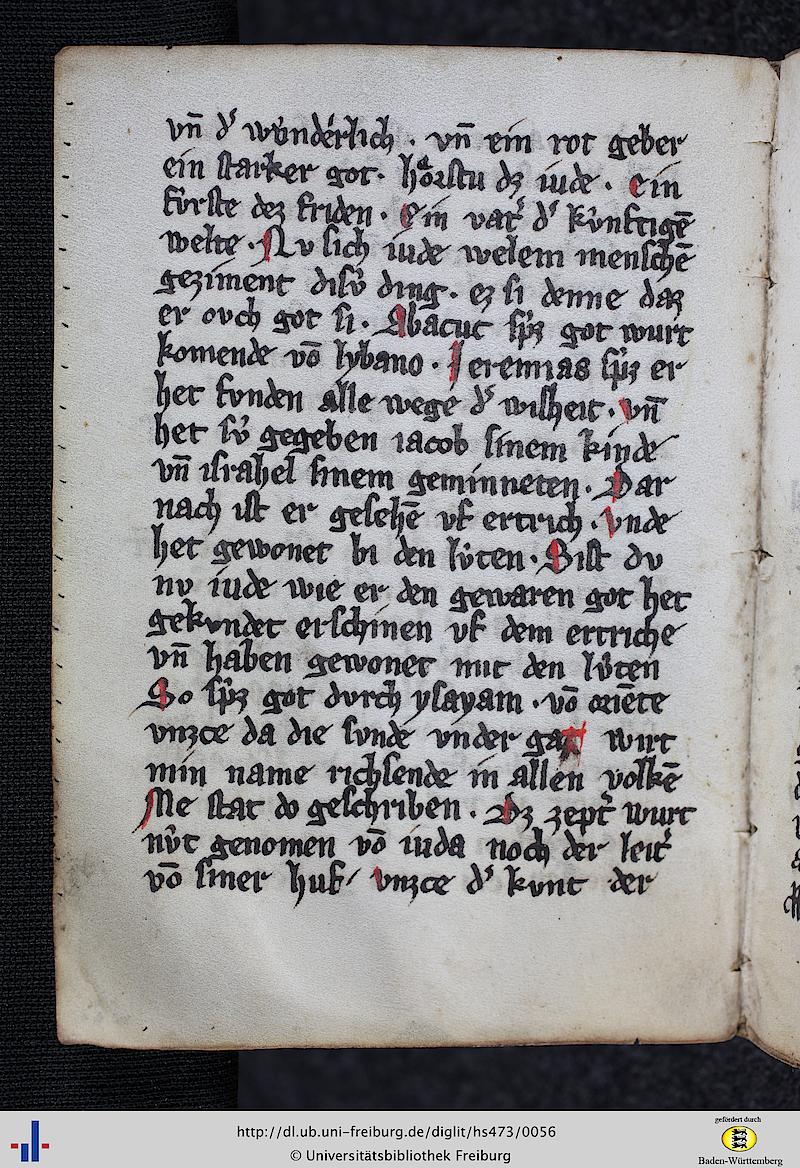 vn̄ d᾽ wůnderlich . vn̄ ein rot geber
ein starker got . hőrstu dz iude . ein
fv́rste dez friden . ein vat᾽ d᾽ kv́nftigē
welte . Nv sich iude welem menschē
geziment disv́ ding . ez si denne daz
er ovch got si . Abacuc sp̄z got wurt
komende vō lybano . Jeremias sp̄z er
het fvnden alle wege d᾽ wisheit . vn̄
het sv́ gegeben iacob sinem kinde
vn̄ israhel sinem geminneten . Dar
nach ist er gesehē vf ertrich . vnde
het gewonet bi den lv́ten . Sist dv
nv iude wie er den gewaren got het
gekvndet erschinen vf dem ertriche
vn̄ haben gewonet mit den lv́ten
So sp̄z got dvrch ysayam . vō oriēte
vnzce da die svnde vnder gat wirt
min name richsende in allen volkē
Me stat do geschriben . Dz zept᾽ wurt
nv́t genomen vō iuda noch der leit᾽
vō siner huf / vnzce d᾽ kvnt der
http://dl.ub.uni-freiburg.de/diglit/hs473/0056
© Universitätsbibliothek Freiburg
gefördert durch
Baden-Württemberg